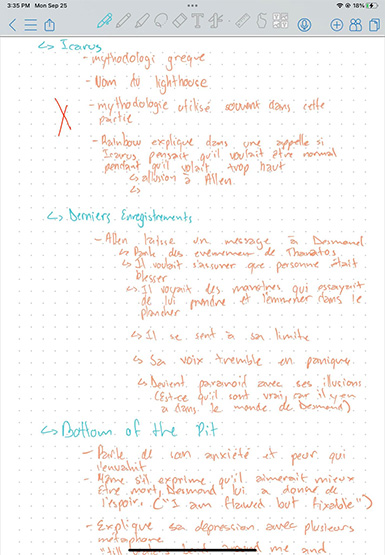 3:35 PM Mon Sep 25
18%
↳ Icarus
- mythodologi greque
- Nom du lighthouse
- mythodologie utilisé souvent dans cette
partie
- Rainbow explique dans une appelle si
Icarus pensait qu'il voulait être normal
pendant qu'il volait trop haut
↳ allusion à Allen
↳
↳ Derniers Enregistrements
- Allen laisse un message à Desmond
↳ Parle des evenemeur de Thanatos
↳ Il voulait s'assurer que personne était
blesser
↳ Il voyait des monstres qui essayait
de lui prendre et l'emmener dans le
plancher
↳ Il se sent à sa limite
↳ Sa voix tremble en panique
↳ Devient paranoid avec ses illusions
(Est-ce qu'il sont vrai, car il y en
a dans le monde de Desmond)
↳ Bottom of the Pit
- Parle de son anxiété et peur qui
l'envahit
- Même s'il exprime qu'il aimerait mieux
être mort, Desmond lui a donné de
l'espoir. ("I am flawed but fixable")
- Explique sa dépression avec plusieurs
métaphore
around me and